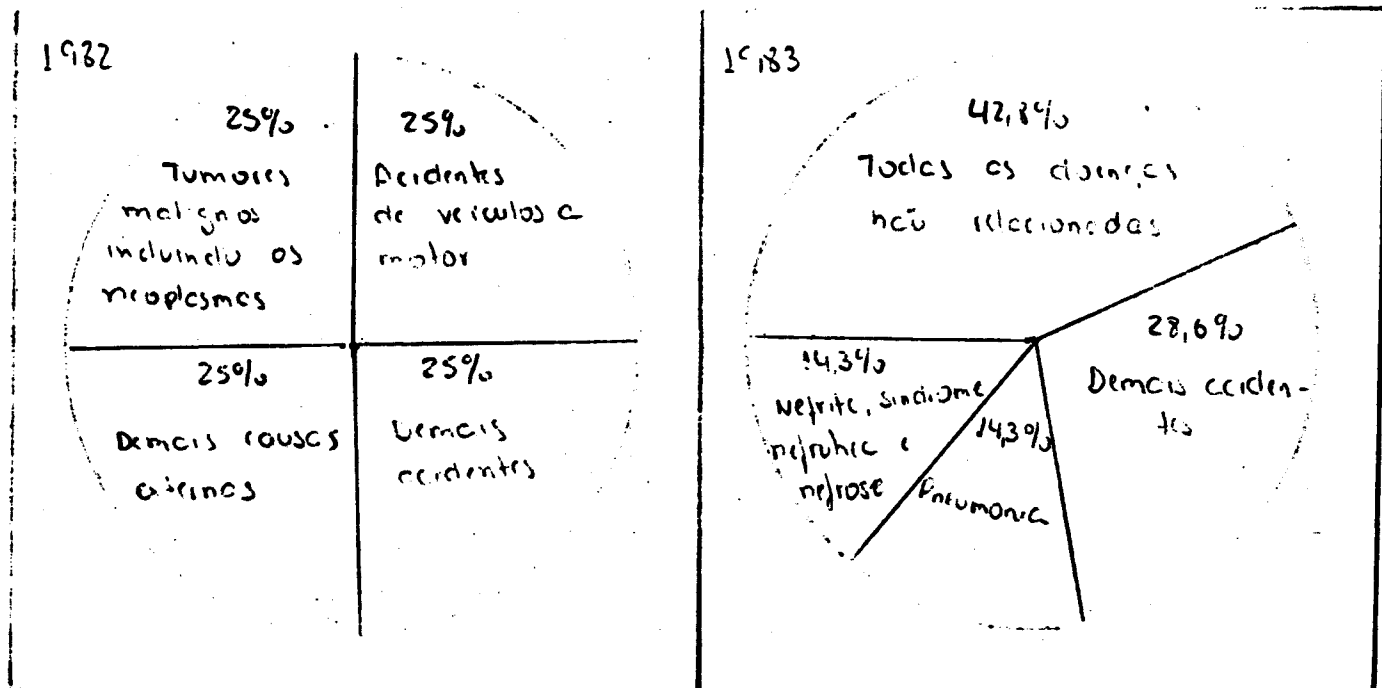 1982
25%
Tumores
malignos
incluindo os
neoplasmas
25%
Acidentes
de veiculos a
motor
25%
Demais causas
externas
25%
Demais
acidentes
1983
42,8%
Todas as doenças
não relacionadas
28,6%
Demais acciden-
tes
14,3%
Nefrite, sindrome
nefrotica e
nefrose
14,3%
Pneumonia